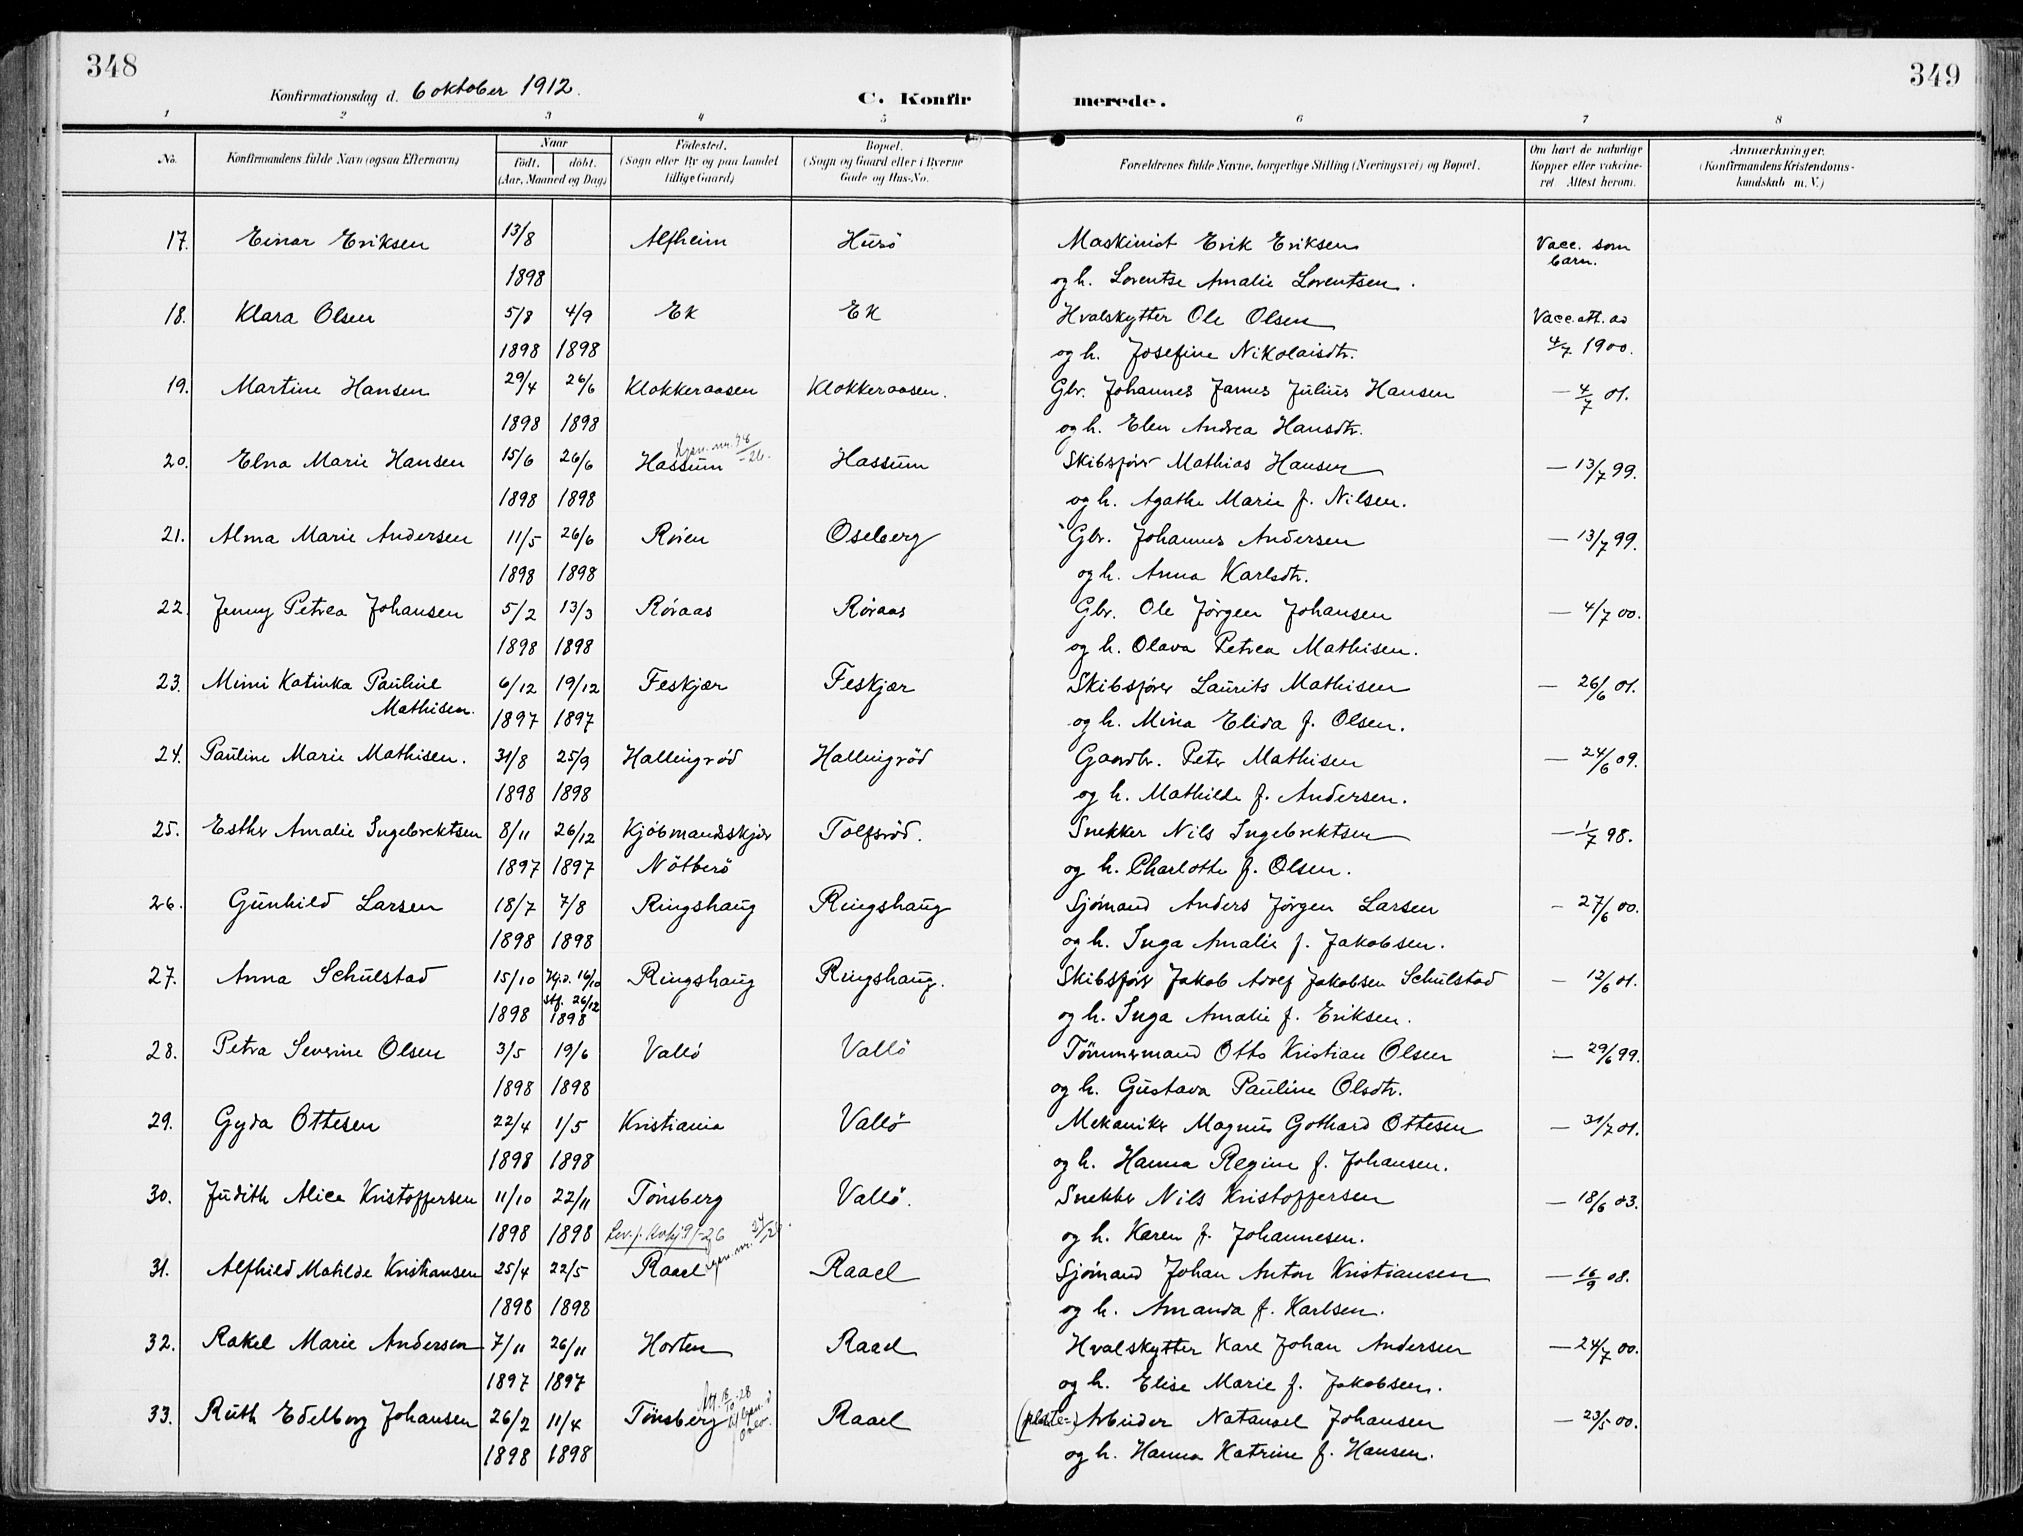 348
349
Konfirmationsdag d. 6 oktober 1912.
C. Konfir merede.
1 2 3 4 5 6 7 8
No. Konfirmandens fulde Navn (ogsaa Efternavn) Naar født. døbt. (Aar, Maaned og Dag) Fødested. (Sogn eller By og paa Landet tillige Gaard) Bopæl. (Sogn og Gaard eller i Byerne Gade og Hus-No. Forældrenes fulde Navne, borgerlige Stilling (Næringsvei) og Bopæl. Om havt de naturlige Kopper eller vakcineret. Attest herom. Anmærkninger. (Konfirmandens Kristendomskundskab m. V.)
17. Einar Eriksen 13/8 Alfheim Husø Maskinist Erik Eriksen Vacc. som barn.
1898 og h. Lorentse Amalie Lorentsen.
18. Klara Olsen 5/8 4/9 Ek Ek Hvalskytter Ole Olsen Vacc. att. av
1898 1898 og h. Josefine Nikolaisdtr. 4/7 1900.
19. Martine Hansen 29/4 26/6 Klokkeraasen Klokkeraasen. Gbr. Johannes James Julius Hansen — 4/7 01.
1898 1898 og h. Elen Andrea Hansdtr.
20. Elna Marie Hansen 15/6 26/6 Hassum Hassum Skibsfører Mathias Hansen — 13/7 99.
1898 1898 og h. Agathe Marie f. Nilsen.
21. Alma Marie Andersen 11/5 26/6 Røren Oseberg Gbr. Johannes Andersen — 13/7 99.
1898 1898 og h. Anna Karlsdtr.
22. Jenny Petrea Johansen 5/2 13/3 Røraas Røraas Gbr. Ole Jørgen Johansen — 4/7 00.
1898 1898 og h. Olava Petrea Mathisen.
23. Mimi Katinka Pauline 6/12 19/12 Feskjær Feskjær Skibsfører Laurits Mathisen — 26/6 01.
Mathisen. 1897 1897 og h. Mina Elida f. Olsen.
24. Pauline Marie Mathisen. 31/8 25/9 Hallingrød Hallingrød Gaardbr. Peter Mathisen — 24/6 09.
1898 1898 og h. Mathilde f. Andersen.
25. Esther Amalie Ingebrektsen 8/11 26/12 Kjøbmandsskjær Tolfsrød. Snekker Nils Ingebrektsen — 1/7 98.
1897 1897 Nøtterø og h. Charlotte f. Olsen.
26. Gunhild Larsen 18/7 7/8 Ringshaug Ringshaug Sjømand Anders Jørgen Larsen — 27/6 00.
1898 1898 og h. Inga Amalie f. Jakobsen.
27. Anna Schulstad 15/10 Hj.d. 16/10 Ringshaug Ringshaug. Skibsfører Jakob Adolf Jakobsen Schulstad — 12/6 01.
1898 stf. 26/12 1898 og h. Inga Amalie f. Eriksen.
28. Petra Severine Olsen 3/5 19/6 Vallø Vallø Tømmermand Otto Kristian Olsen — 29/6 99.
1898 1898 og h. Gustava Pauline Olsdtr.
29. Gyda Ottesen 22/4 1/5 Kristiania Vallø Mekaniker Magnus Gothard Ottesen — 31/7 01.
1898 1898 og h. Hanna Regine f. Johansen.
30. Judith Alice Kristoffersen 11/10 22/11 Tønsberg Vallø. Snekker Nils Kristoffersen — 18/6 03.
1898 1898 og h. Karen f. Johannesen.
31. Alfhild Matilde Kristiansen 25/4 22/5 Raael Raael Sjømand Johan Anton Kristiansen — 16/9 08.
1898 1898 og h. Amanda f. Karlsen.
32. Rakel Marie Andersen 7/11 26/11 Horten Raael Hvalskytter Karl Johan Andersen — 24/7 00.
1897 1897 og h. Elise Marie f. Jakobsen.
33. Ruth Edelborg Johansen 26/2 11/4 Tønsberg Raael Arbeider Natanael Johansen — 23/5 00.
1898 1898 og h. Hanna Katrine f. Hansen.